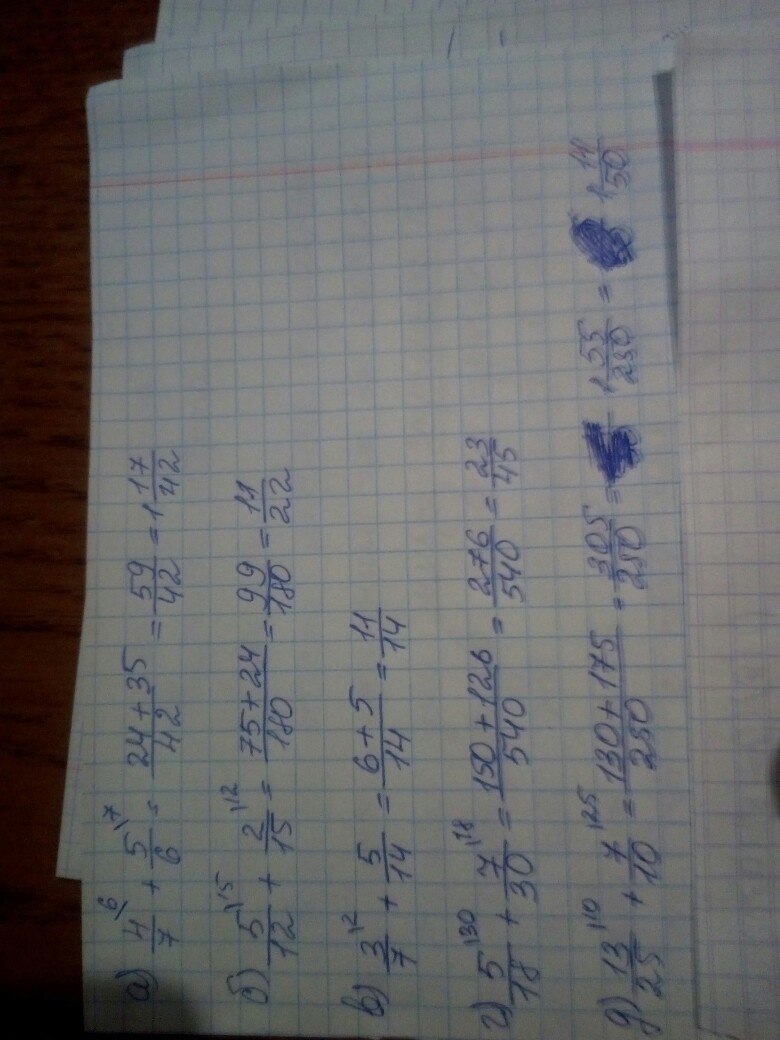 а) 4/7 |6 + 5/6 |7 = 24+35/42 = 59/42 = 1 17/42
б) 5/12 |15 + 2/15 |12 = 75+24/180 = 99/180 = 11/22
в) 3/7 |2 + 5/14 = 6+5/14 = 11/14
г) 5/18 |30 + 7/30 |18 = 150+126/540 = 276/540 = 23/45
д) 13/25 |10 + 7/10 |25 = 130+175/250 = 305/250 = 1 55/250 = 1 11/50